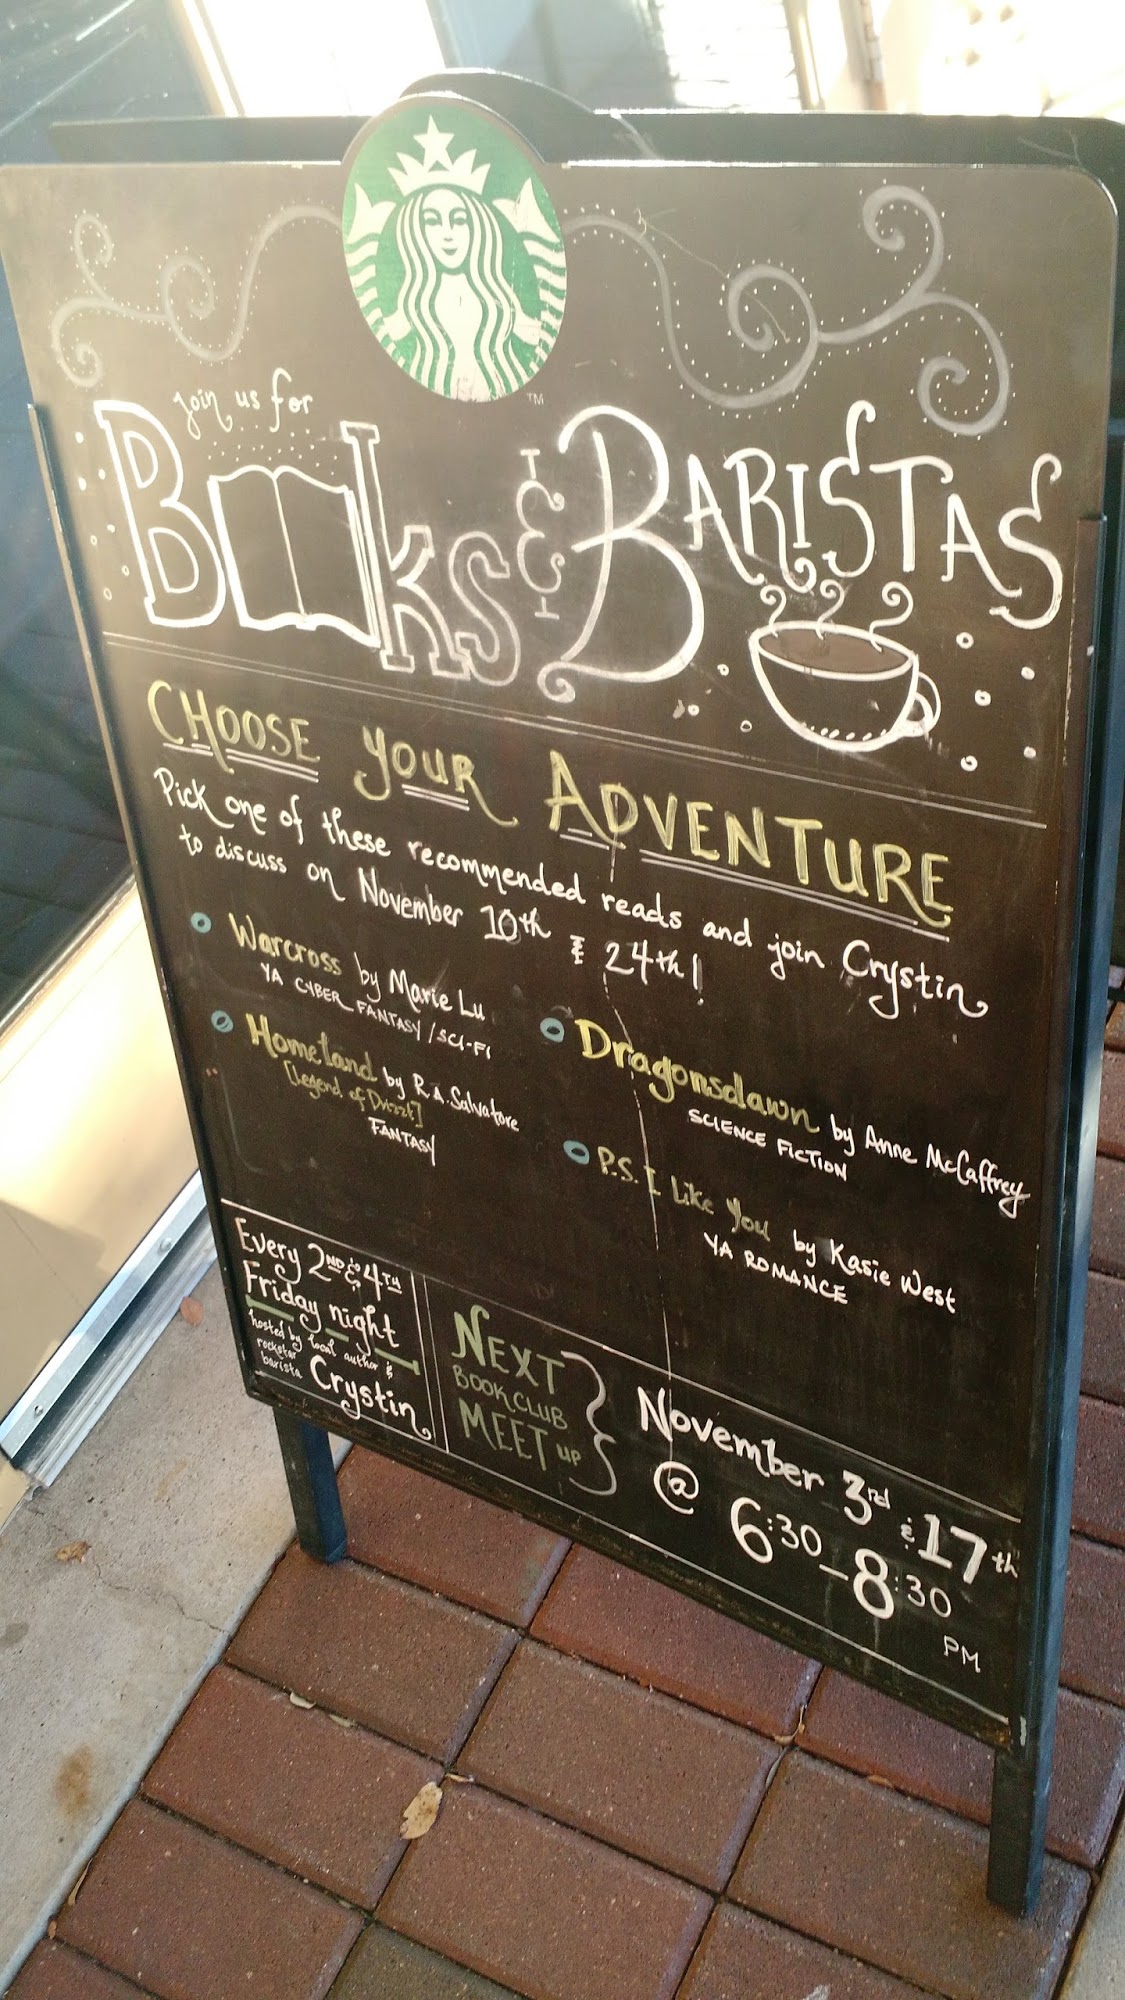 TM
join us for
Books & BARISTAS
CHOOSE YOUR ADVENTURE
Pick one of these recommended reads and join Crystin
to discuss on November 10th & 24th!
Warcross by Marie Lu
YA CYBER FANTASY/SCI-FI
Homeland by R.A. Salvatore
[Legend of Drizzt]
FANTASY
Dragonsdawn by Anne McCaffrey
SCIENCE FICTION
P.S. I Like You by Kasie West
YA ROMANCE
Every 2ND & 4TH
Friday night
hosted by local author &
rockstar
barista Crystin
NEXT
BOOK CLUB
MEET UP
November 3rd & 17th
@ 6:30-8:30
PM